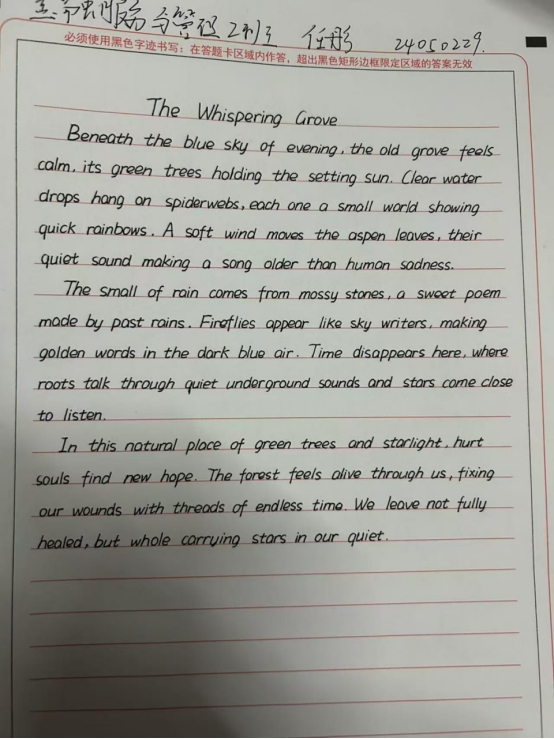 任彤 24050229.
必须使用黑色字迹书写：在答题卡区域内作答，超出黑色矩形边框限定区域的答案无效
The Whispering Grove
Beneath the blue sky of evening, the old grove feels
calm, its green trees holding the setting sun. Clear water
drops hang on spiderwebs, each one a small world showing
quick rainbows. A soft wind moves the aspen leaves, their
quiet sound making a song older than human sadness.
The small of rain comes from mossy stones, a sweet poem
made by past rains. Fireflies appear like sky writers, making
golden words in the dark blue air. Time disappears here, where
roots talk through quiet underground sounds and stars come close
to listen.
In this natural place of green trees and starlight, hurt
souls find new hope. The forest feels alive through us, fixing
our wounds with threads of endless time. We leave not fully
healed, but whole carrying stars in our quiet.